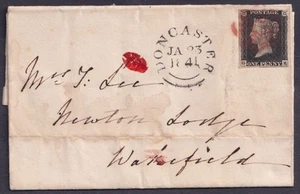 DONCASTER
JA 23
1841
POSTAGE
ONE PENNY
Mrs T. Lee
Newton Lodge
Wakefield